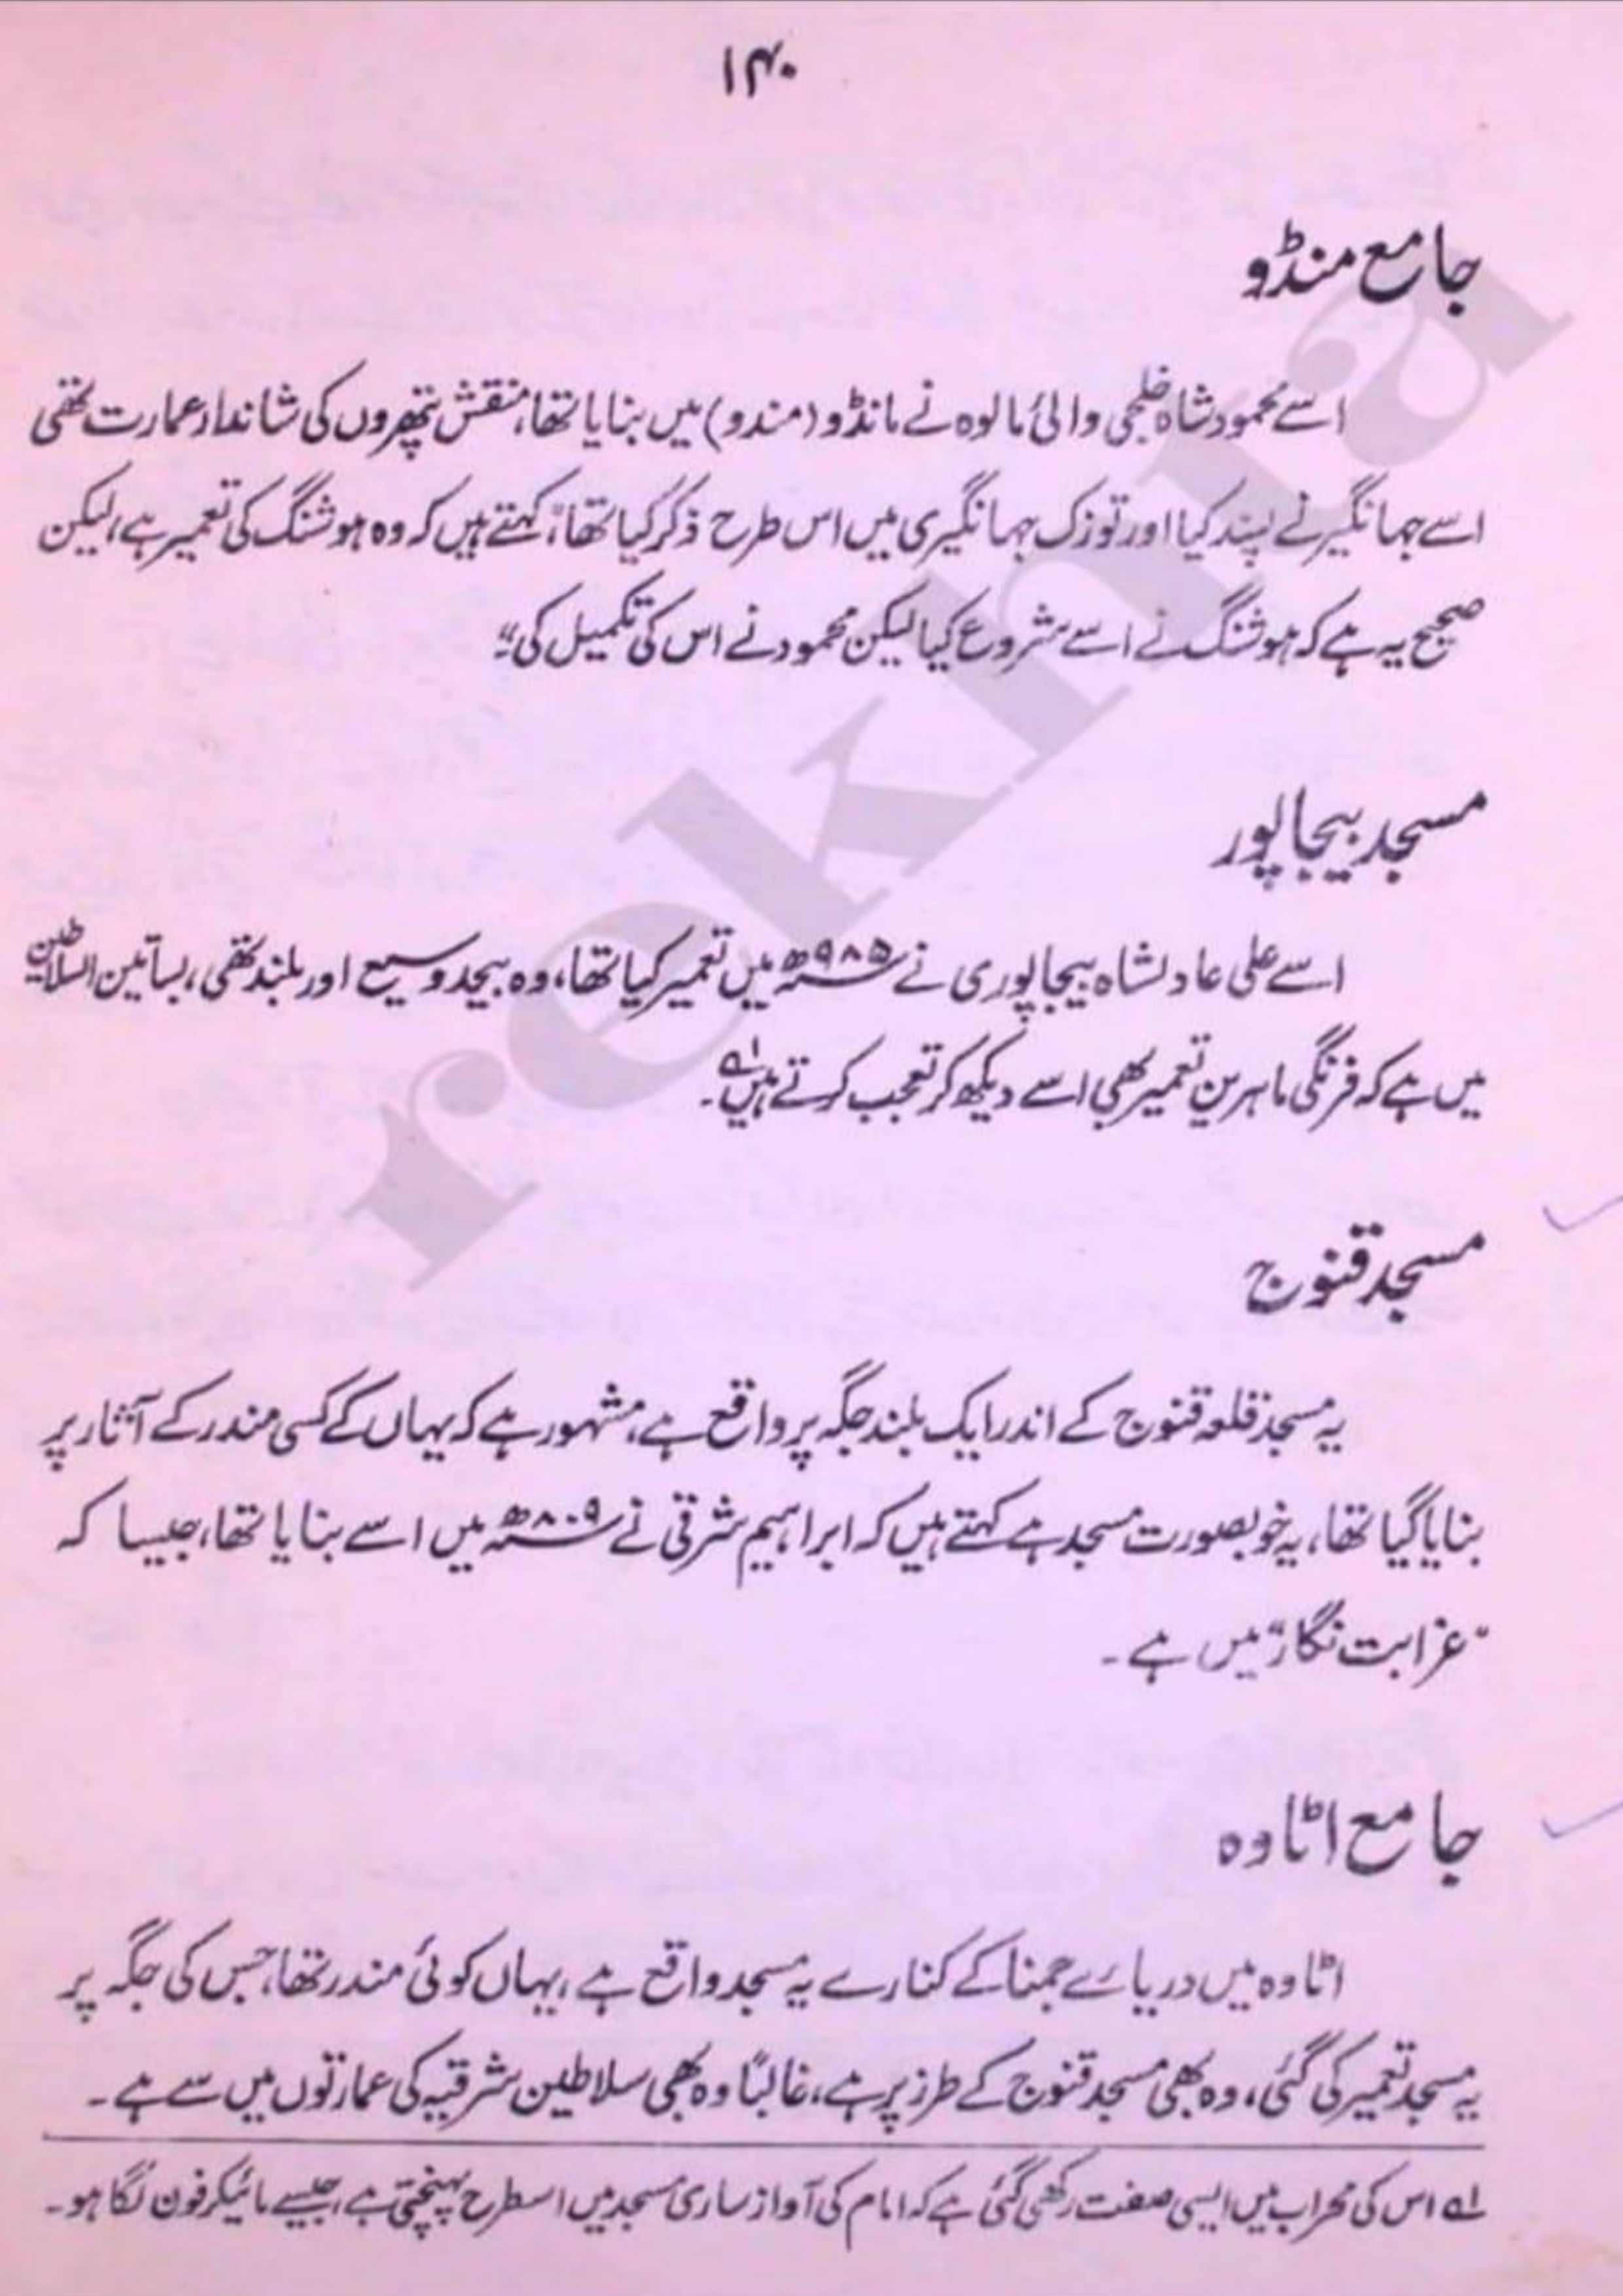 ۱۴۰
جامع منڈو
اسے محمود شاہ خلجی والیٔ مالوہ نے مانڈو (مندو) میں بنایا تھا، منقش پتھروں کی شاندار عمارت تھی
اسے جہانگیر نے پسند کیا اور توزک جہانگیری میں اس طرح ذکر کیا تھا، "کہتے ہیں کہ وہ ہوشنگ کی تعمیر ہے، لیکن
صحیح یہ ہے کہ ہوشنگ نے اسے شروع کیا لیکن محمود نے اس کی تکمیل کی"۔
مسجد بیجاپور
اسے علی عادلشاہ بیجاپوری نے ۹۸۵ھ میں تعمیر کیا تھا، وہ بیحد وسیع اور بلند تھی، بساتین السلاطین
میں ہے کہ فرنگی ماہرین تعمیر بھی اسے دیکھ کر تعجب کرتے ہیں۱ے۔
مسجد قنوج
یہ مسجد قلعہ قنوج کے اندر ایک بلند جگہ پر واقع ہے، مشہور ہے کہ یہاں کے کسی مندر کے آثار پر
بنایا گیا تھا، یہ خوبصورت مسجد ہے کہتے ہیں کہ ابراہیم شرقی نے ۸۰۹ھ میں اسے بنایا تھا، جیسا کہ
"غرابت نگار" میں ہے۔
جامع اٹاوہ
اٹاوہ میں دریائے جمنا کے کنارے یہ مسجد واقع ہے، یہاں کوئی مندر تھا، جس کی جگہ پر
یہ مسجد تعمیر کی گئی، وہ بھی مسجد قنوج کے طرز پر ہے، غالباً وہ بھی سلاطین شرقیہ کی عمارتوں میں سے ہے۔
۱ے اس کی محراب میں ایسی صفت رکھی گئی ہے کہ امام کی آواز ساری مسجد میں اسطرح پہنچتی ہے، جیسے مائیکرفون لگا ہو۔
rekhta